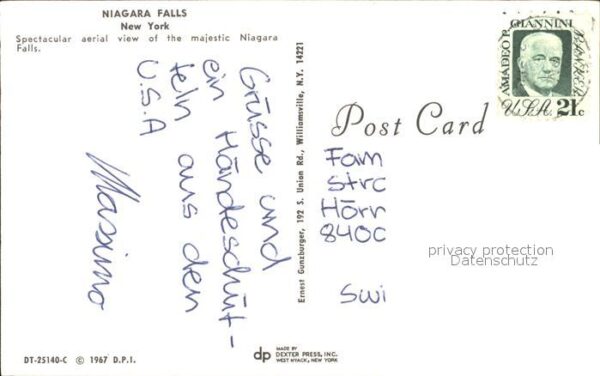 NIAGARA FALLS
New York
Spectacular aerial view of the majestic Niagara
Falls.
Grüsse und
ein Händeschüt-
teln aus den
U.S.A
Massimo
Ernest Gunzburger, 192 S. Union Rd., Williamsville, N.Y. 14221
AMADEO P. GIANNINI
BANKER
U.S.A. 21c
Post Card
Fam
Strc
Hörr
840C
Swi
privacy protection
Datenschutz
DT-25140-C © 1967 D.P.I.
dp
MADE BY
DEXTER PRESS, INC.
WEST NYACK, NEW YORK